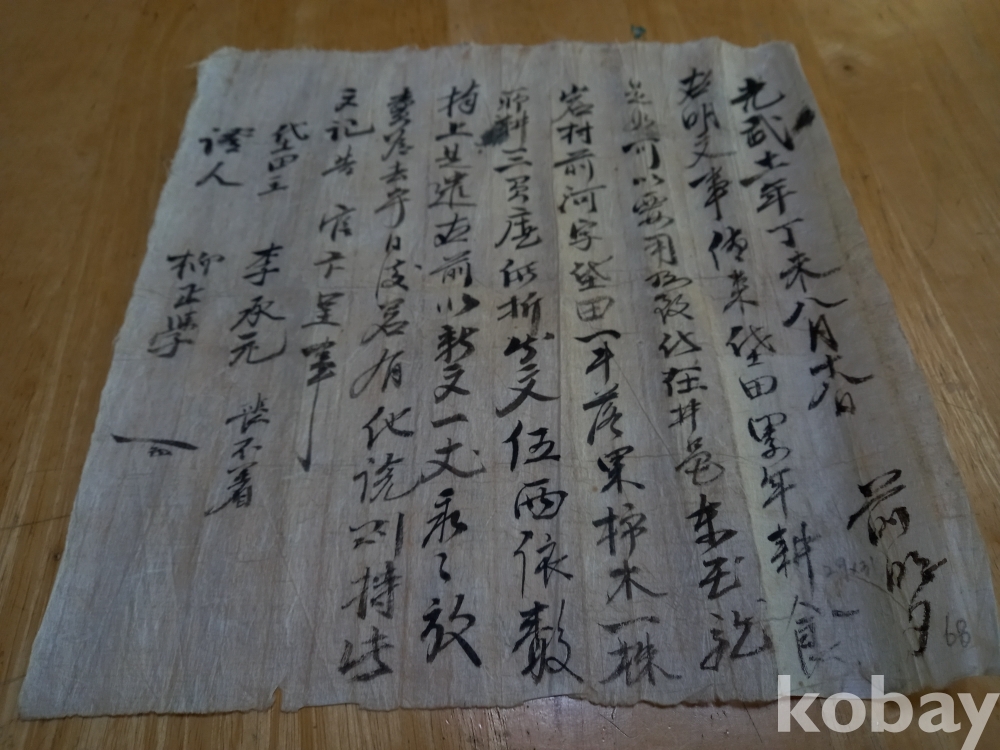 光武十一年丁未八月十八日 前明文
右明文事傳來垈田累年耕食
是如可以要用所致伏在井邑東面龍
岩村前河字垈田一斗落果柿木一株
所耕三 庫 折 文伍兩依數
捧上是遣右前以新文一丈永永放
賣爲去乎日後若有他談則持此
文記告 官卞呈事
垈田主 李承元 諜不着
證人 柳正學
68
kobay